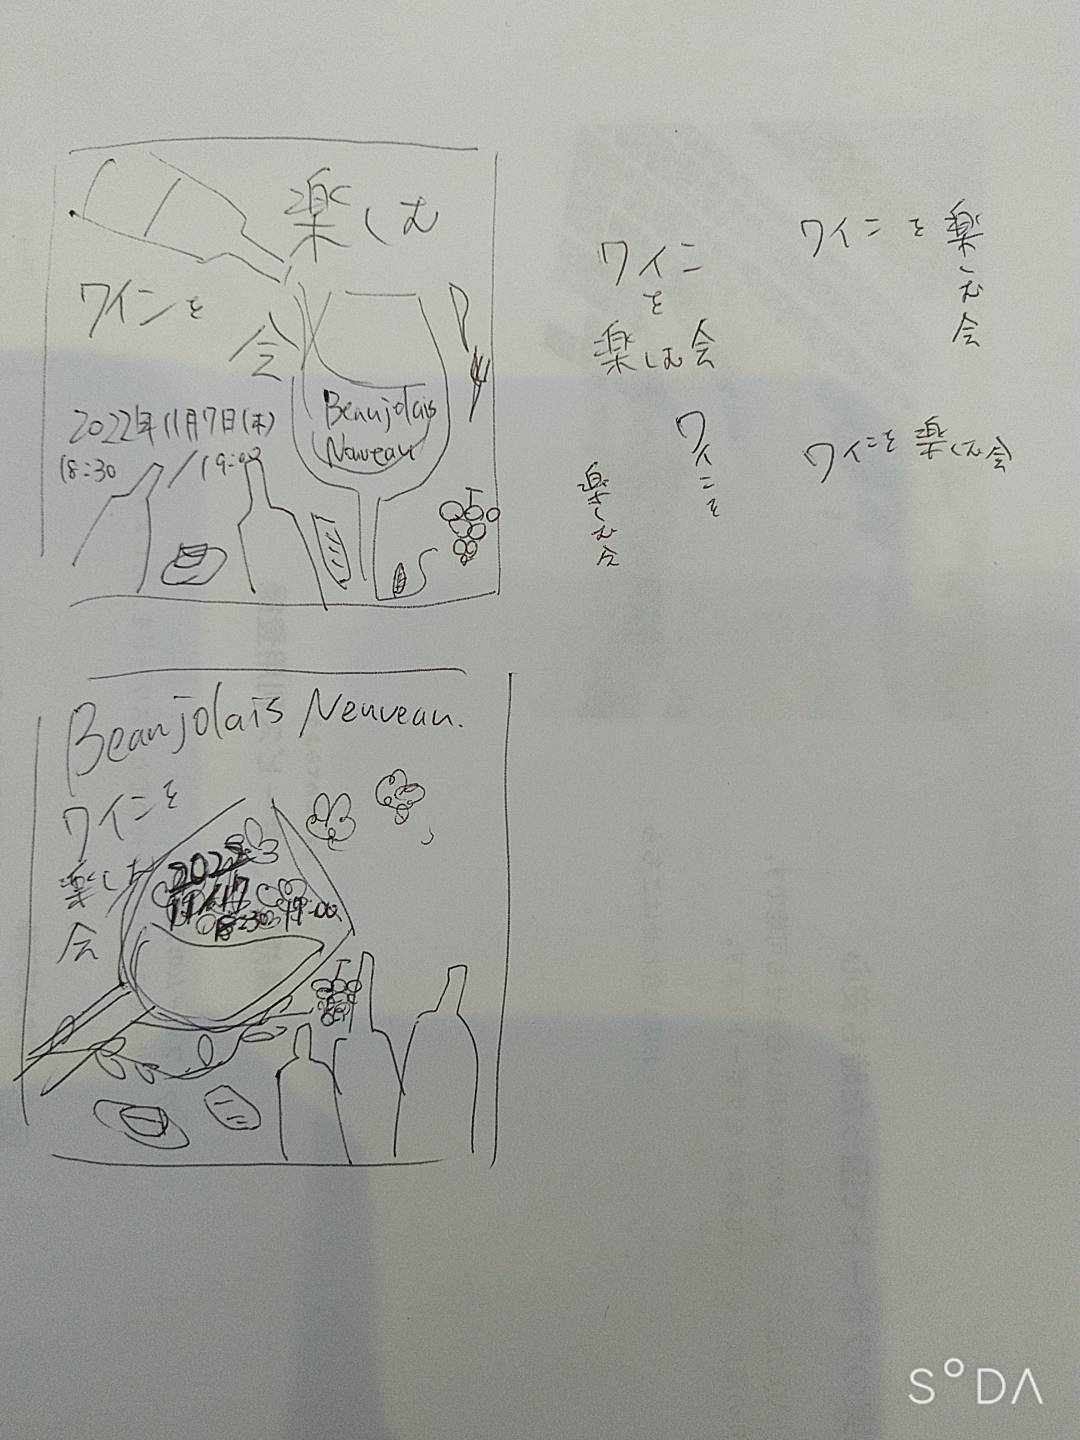 楽しむ
ワインを
会
Beaujolais
Nouveau
2022年11月7日(木)
18:30 / 19:00
ワイン
を
楽しむ会
ワインを楽
しむ会
ワインを
楽しむ会
ワインを楽しむ会
Beaujolais Neuveau.
ワインを
楽しむ
会
2022
11/17
18:30 19:00
SODA